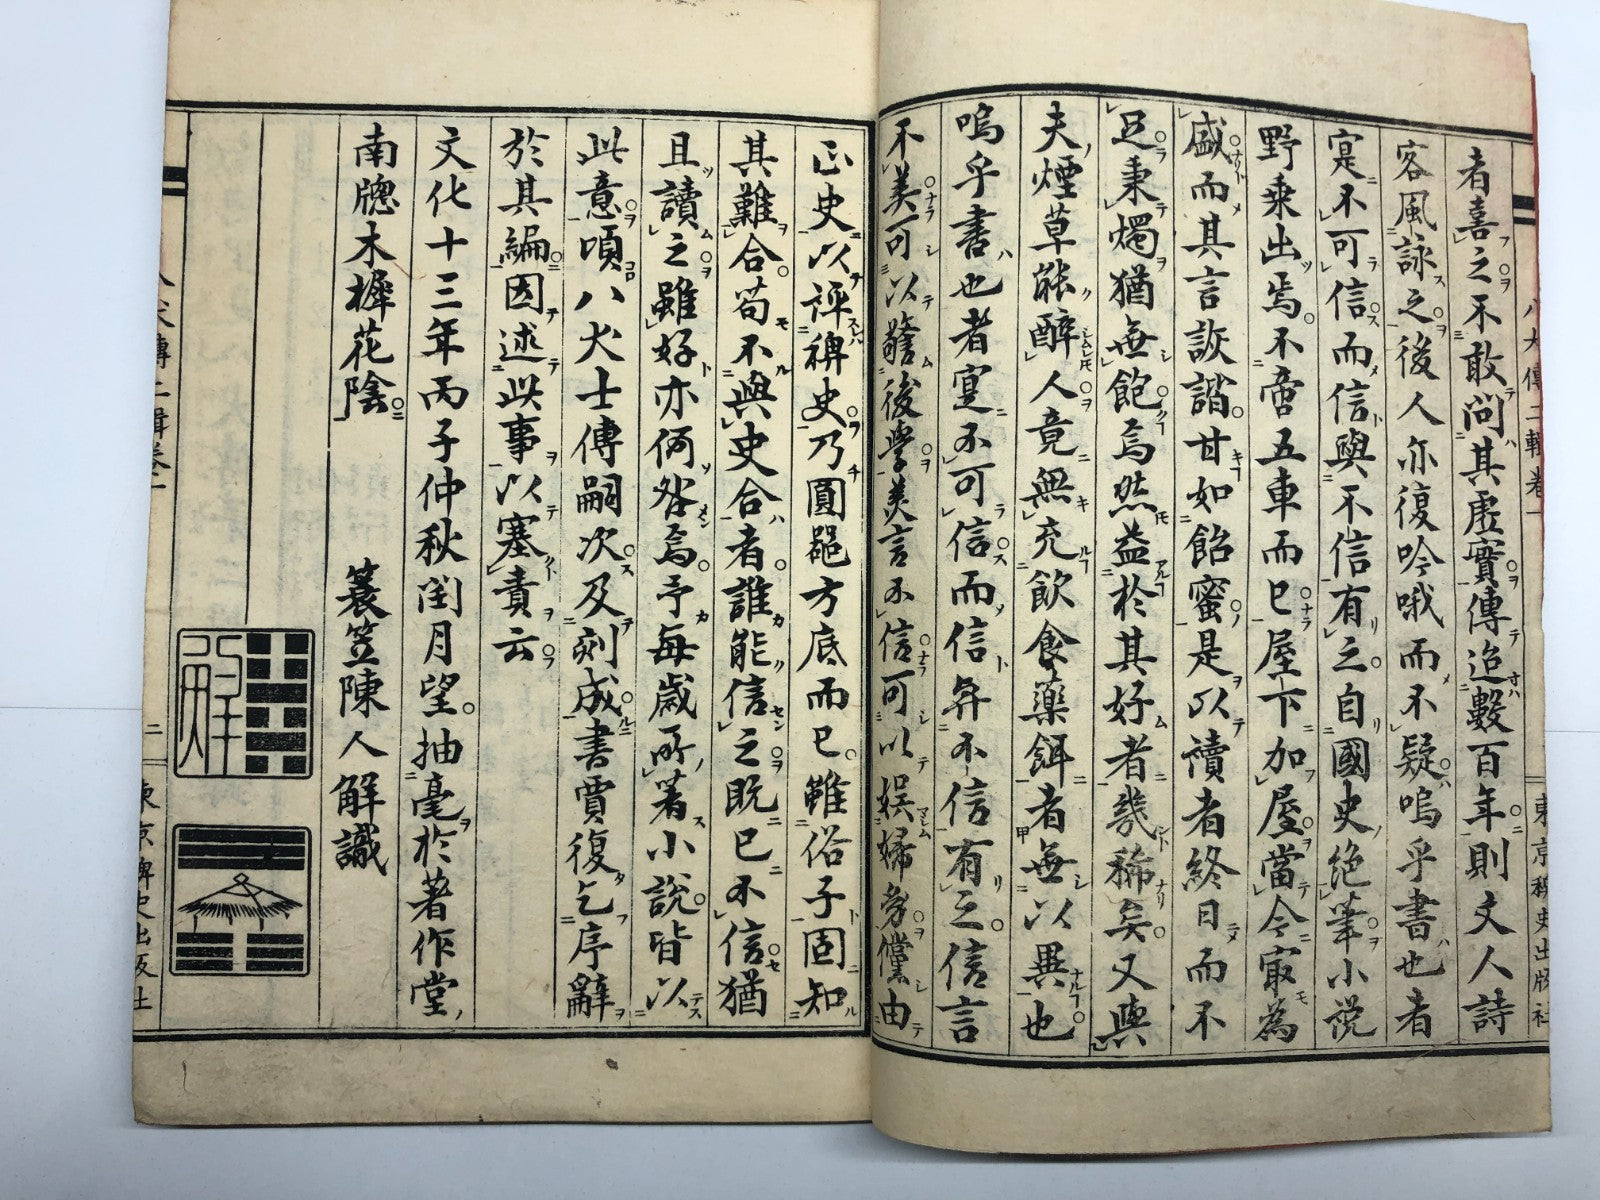 八犬傳二輯卷一
東京稗史出版社
者喜之不敢問其虛實傳迨數百年則文人詩
客風詠之後人亦復吟哦而不疑嗚乎書也者
寔不可信而信與不信有之自國史絶筆小説
野乗出焉不啻五車而已屋下加屋當今寂為
盛而其言詼諧甘如飴蜜是以讀者終日而不
足秉燭猶無飽焉然益於其好者幾稀矣又與
夫煙草能醉人竟無充飲食藥餌者無以異也
嗚乎書也者寔不可信而信與不信有之信言
不美可以警後學美言不信可以娯婦㓜儻由
正史以評稗史乃圓器方底而已雖俗子固知
其難合苟不與史合者誰能信之既已不信猶
且讀之雖好亦何咎焉予毎歳所著小説皆以
此意頃八犬士傳嗣次及刻成書賈復乞序辭
於其編因述此事以塞責云
文化十三年丙子仲秋閏月望抽毫於著作堂
南牕木樨花陰
蓑笠陳人解識
解
二
東京稗史出版社